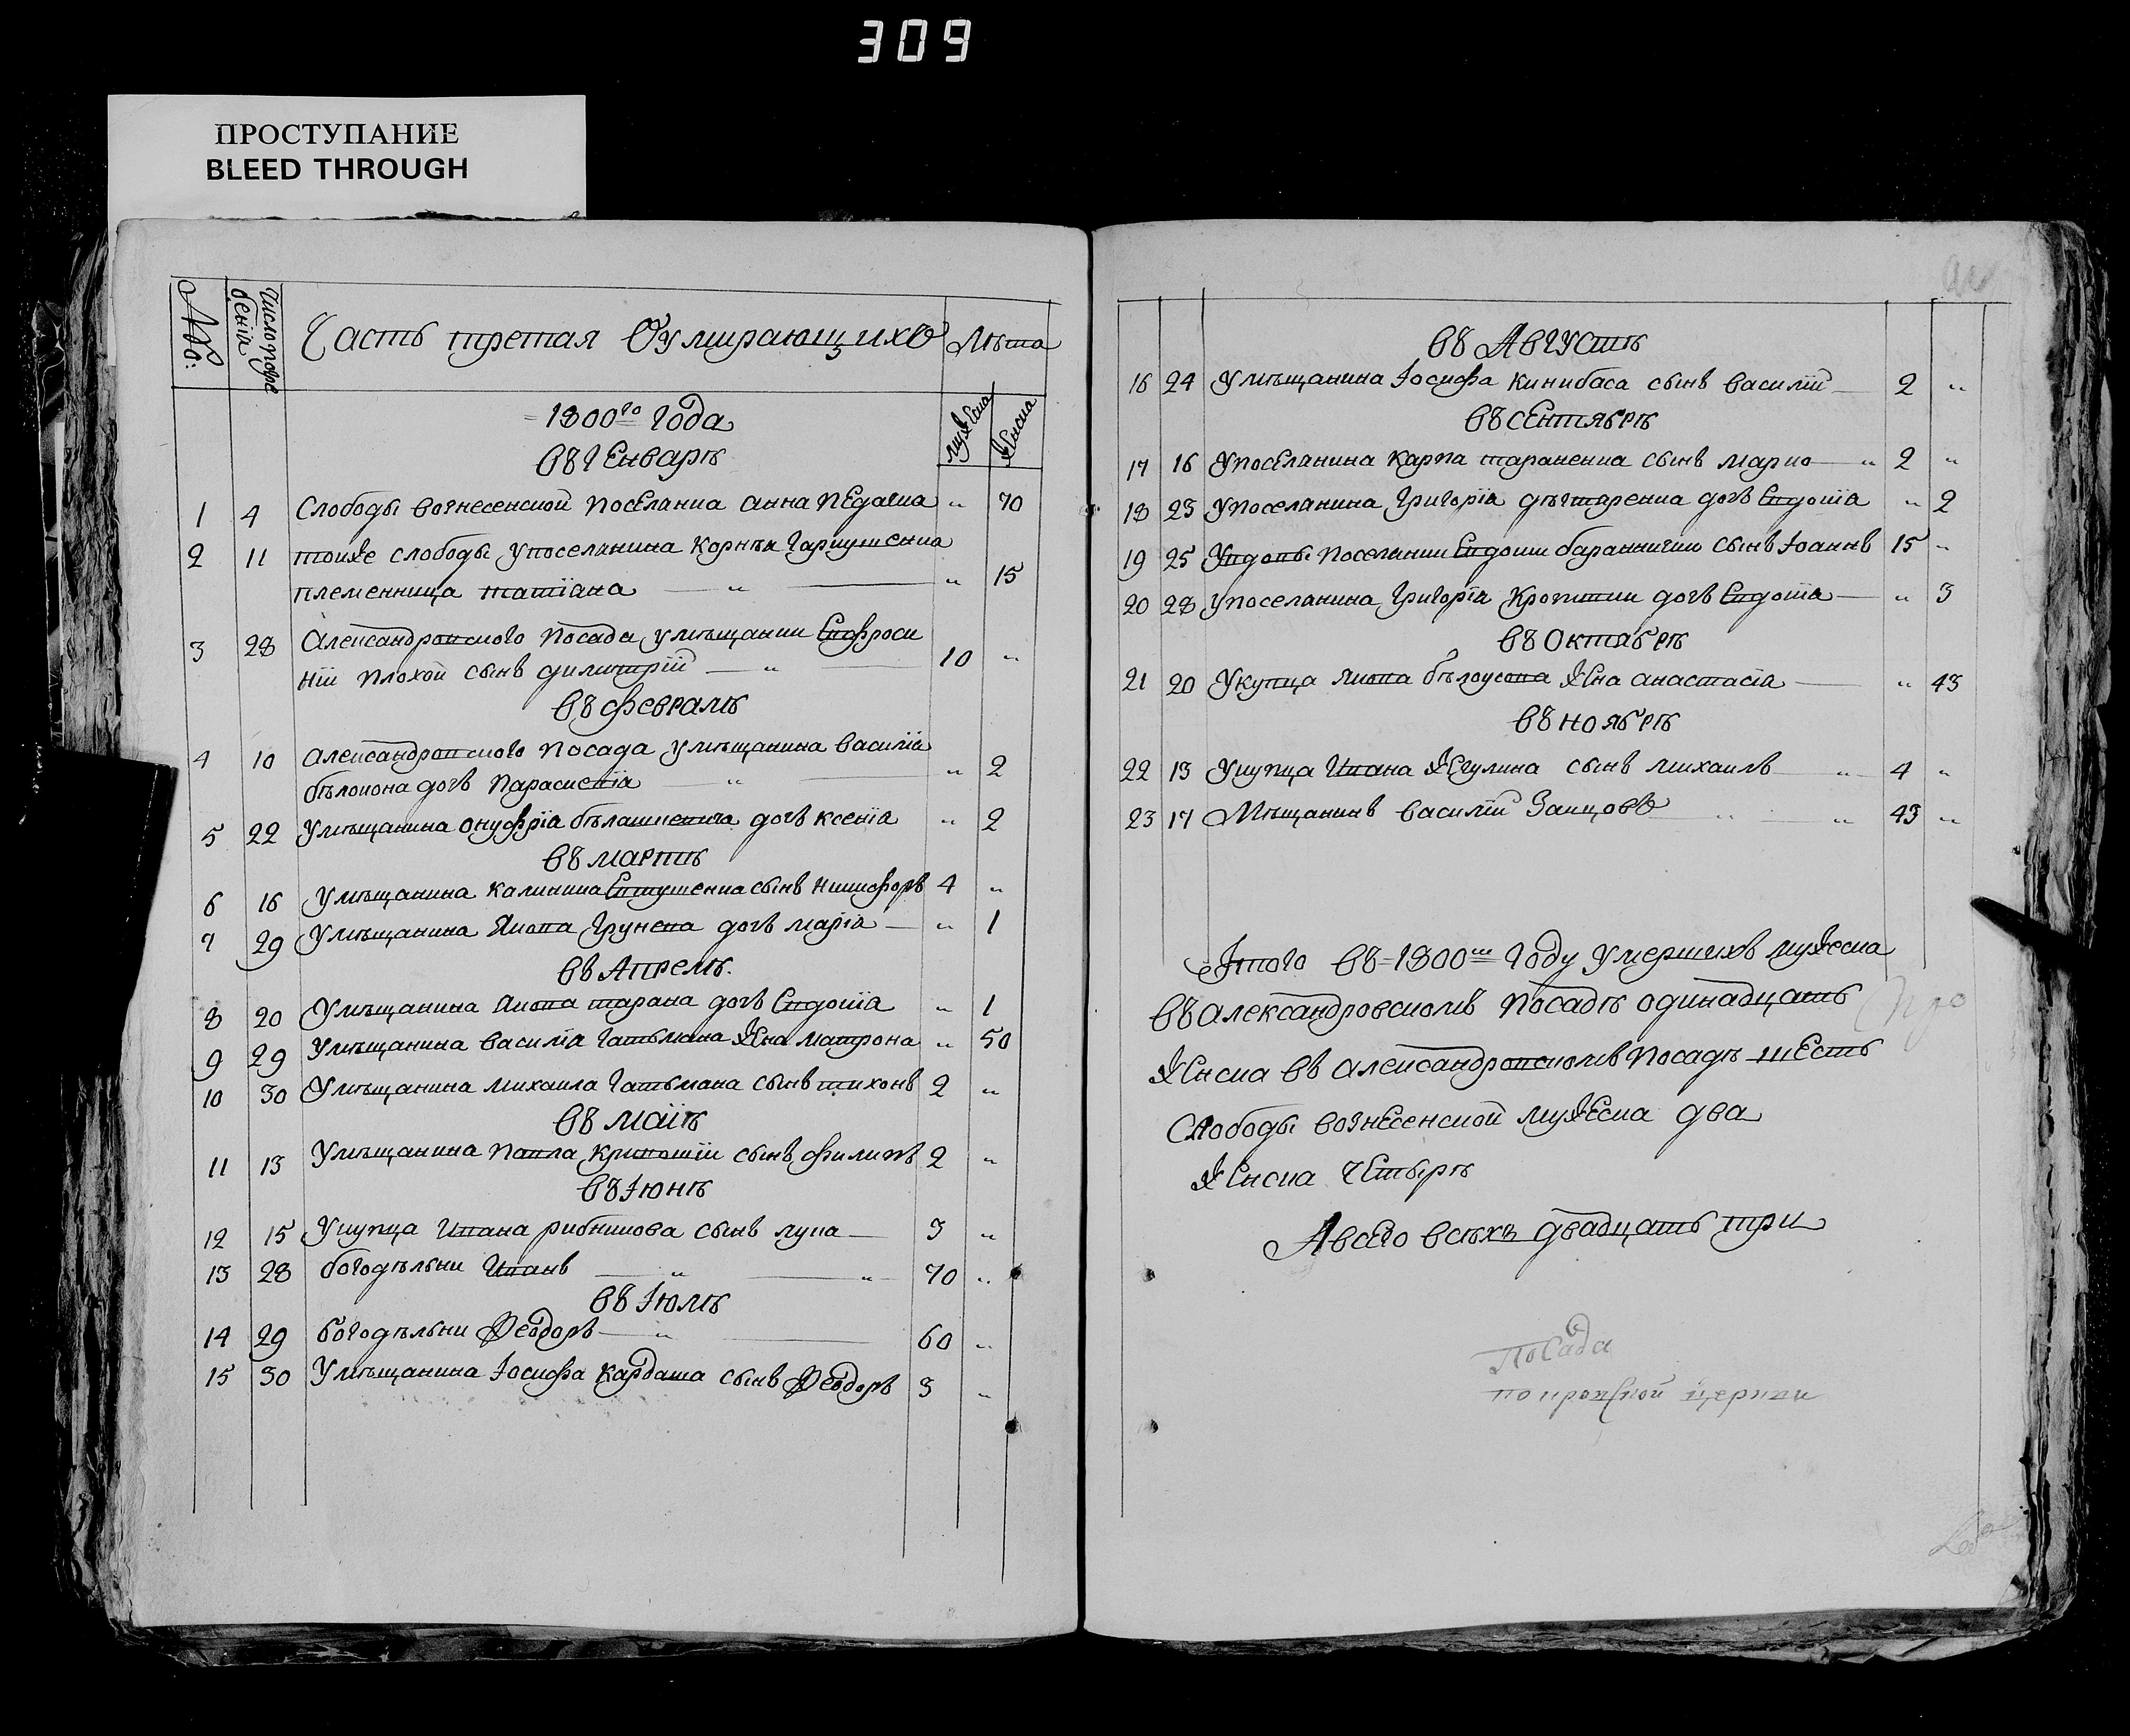 309
ПРОСТУПАНИЕ
BLEED THROUGH
№:
число погре
бенiя
Часть третая Оумирающихъ
Лѣта
мужеска
женска
=1800го года
въ генварѣ
1 4 Слободы вознесенской поселянка анна „ 70
2 11 тоиже слободы упоселянина корнѣя гаркушенка
племенница татiана „ „ 15
3 28 Александровского посада умѣщанки Евфроси
нiи плохой сынъ димитрiй „ 10 „
въ февралѣ
4 10 александровского посада умѣщанина василiя
дочъ параскевiя „ „ 2
5 22 Умѣщанина онуфрiя дочъ ксенiя „ 2
въ мартѣ
6 16 Умѣщанина калиника Евтушенка сынъ никифоръ 4 „
7 29 Умѣщанина Якова дочъ марiа „ 1
въ Апрелѣ.
8 20 Умѣщанина Якова тарана дочъ Евдокiа „ 1
9 29 Умѣщанина василiя гатьмана жена матрона „ 50
10 30 Умѣщанина михаила гатьмана сынъ тихонъ 2 „
въ маiѣ
11 13 Умѣщанина павла сынъ филипъ 2 „
въ iюнѣ
12 15 Укупца Ивана рибникова сынъ лука 3 „
13 28 богодѣльни Иванъ „ „ 70 „
въ iюлѣ
14 29 богодѣльни Феодоръ „ 60 „
15 30 Умѣщанина iосифа кардаша сынъ Феодоръ 3 „
въ Августѣ
16 24 Умѣщанина iосифа кинибаса сынъ василiй 2 „
въ сентябрѣ
17 16 Упоселянина карпа тараненка сынъ марко „ 2 „
18 23 Упоселянина григорiа дѣгтяренка дочъ Евдокiа „ 2
19 25 Увдовы поселянки Евдокии сынъ iоаннъ 15 „
20 28 упоселянина григорiа дочъ Евдокiа „ 3
въ октябрѣ
21 20 Укупца якова бѣлоусова жена анастасiа „ 43
въ ноябрѣ
22 13 Укупца Ивана жегулина сынъ михаилъ „ 4 „
23 17 Мѣщанинъ василiй Заицовъ „ „ 43 „
Iтого въ=1800мъ году умершихъ мужеска
въ александровскомъ посадѣ одинадцать
женска въ александровскомъ посадѣ шесть
Слободы вознесенской мужеска два
женска четырѣ
Авсего всѣхъ двадцать три
Посада
покровской церкви